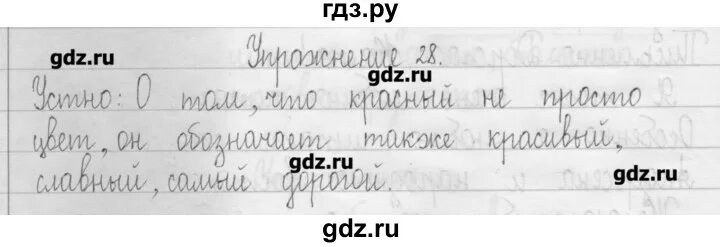 гдз.ру
gdz.ru
Упражнение 28.
gdz.ru
Устно: О том, что красный не просто
цвет, он обозначает также красивый,
gdz.ru
gdz.ru
славный, самый дорогой.
gdz.ru